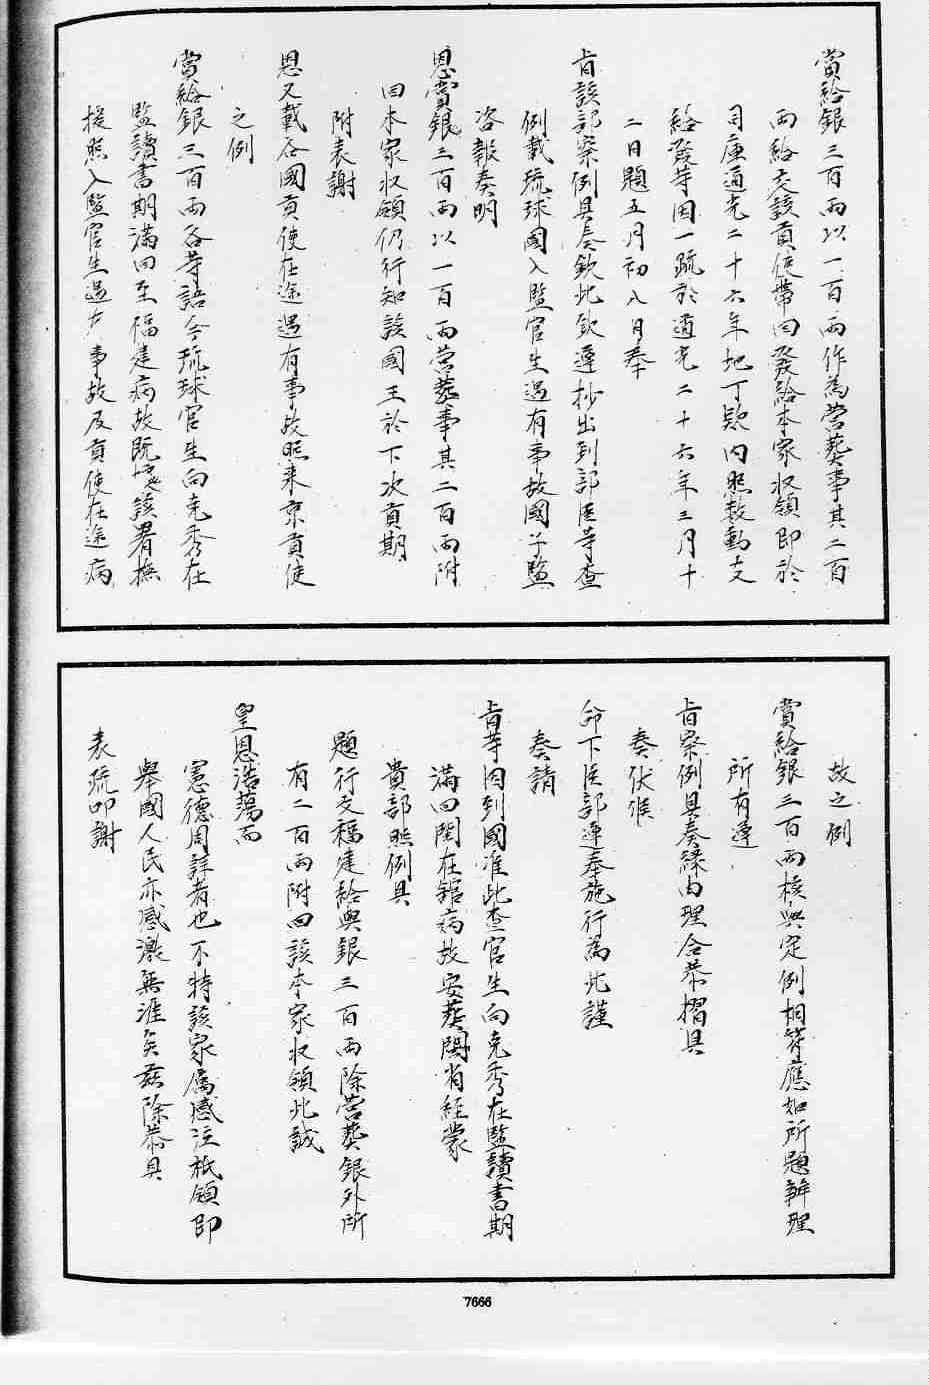 賞給銀三百兩以一百兩作為營葬事其二百
兩給交該貢使帶回發給本家収領即於
司庫道光二十六年地丁欵内照数動支
給發等因一疏於道光二十六年三月十
二日題五月初八日奉
旨該部察例具奏欽此欽遵抄出到部臣等查
例載琉球國入監官生遇有事故國子監
咨報奏明
恩賞銀三百兩以一百兩營葬事其二百兩附
回本家収領仍行知該國王於下次貢期
附表謝
恩又載各國貢使在途遇有事故照来京貢使
之例
賞給銀三百兩各等語今琉球官生向克秀在
監讀書期滿回至福建病故既據該署撫
援照入監官生遇有事故及貢使在途病
故之例
賞給銀三百兩核與定例相符應如所題辦理
所有遵
旨察例具奏緣由理合恭摺具
奏伏候
命下臣部遵奉施行為此謹
奏請
旨等因到國准此查官生向克秀在監讀書期
滿回閩在舘病故安葬閩省經蒙
貴部照例具
題行文福建給與銀三百兩除營葬銀外所
有二百兩附回該本家収領此誠
皇恩浩蕩而
憲德周詳者也不特該家屬感泣祇領即
舉國人民亦感激無涯矣茲除恭具
表疏叩謝
7666